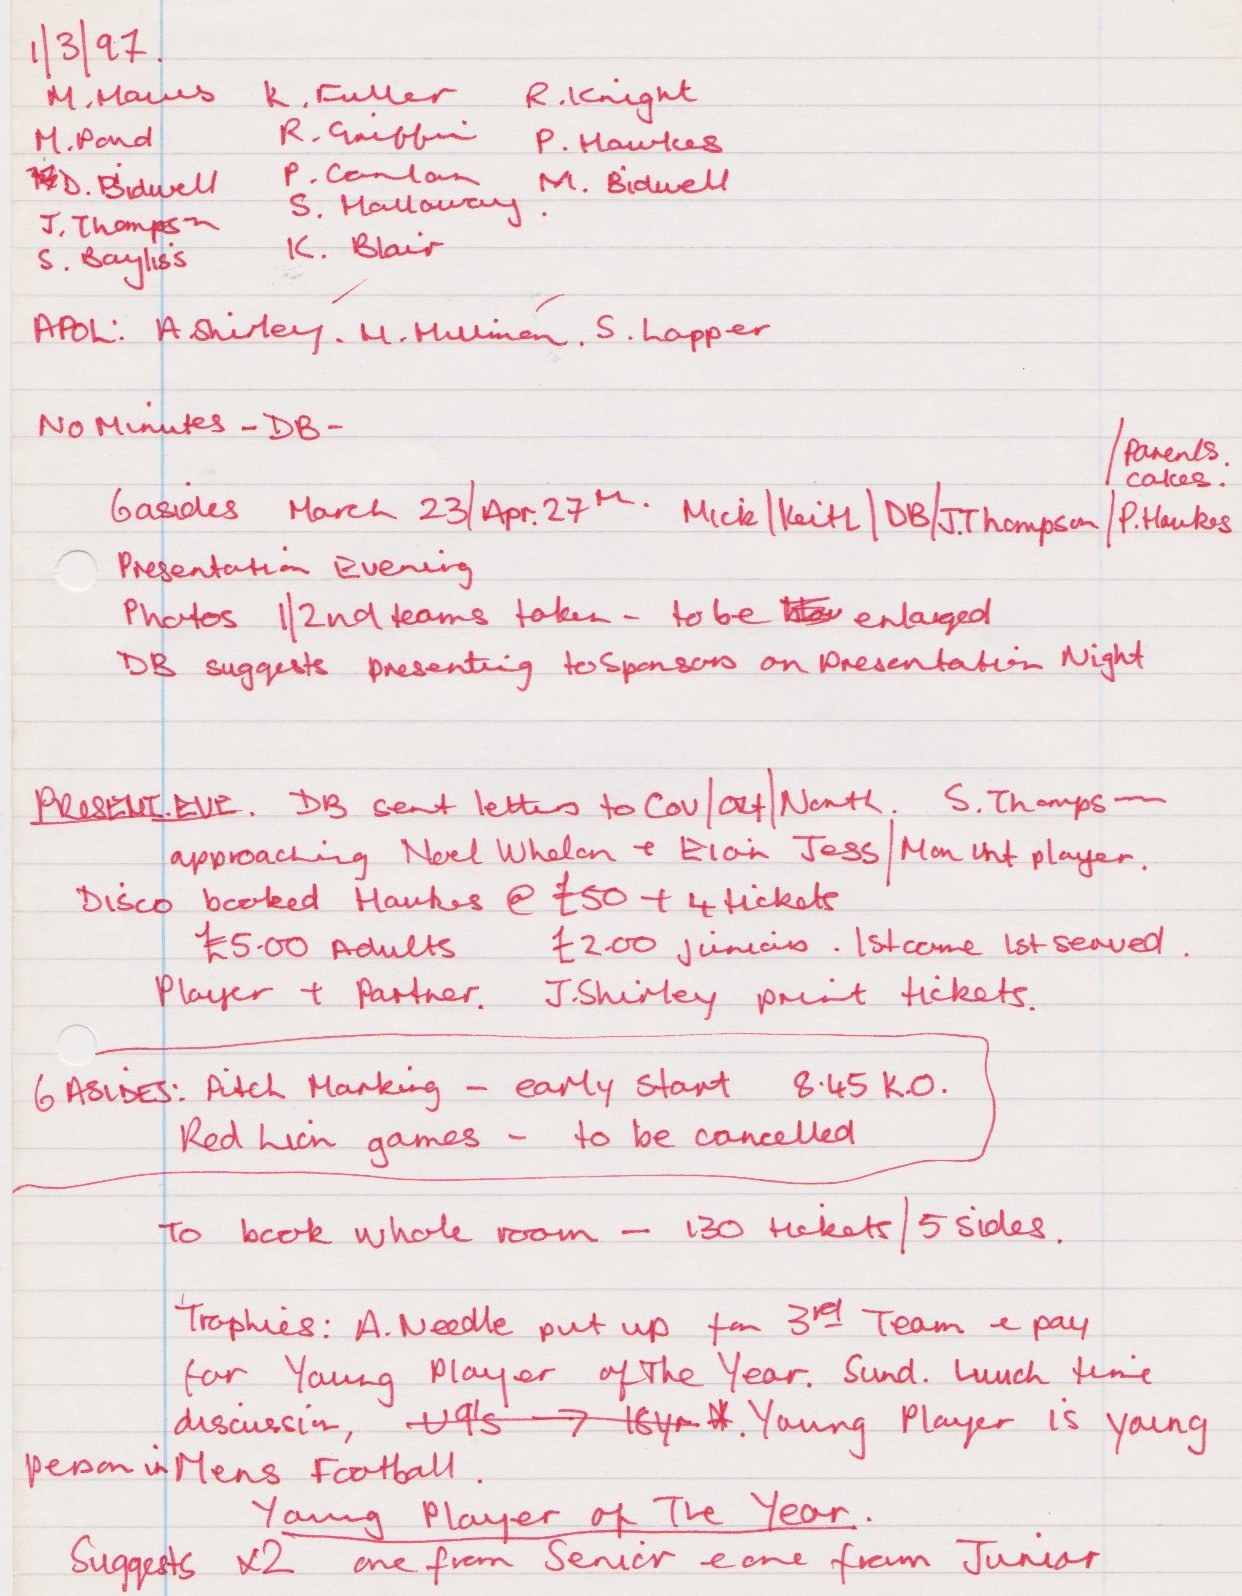 1/3/97.
M. Mawis K. Fuller R. Knight
M. Pond R. Griffin P. Hawkes
D. Bidwell P. Conlan M. Bidwell
J. Thompson S. Halloway.
S. Bayliss K. Blair
APOL: A. Shirley. M. Millinen. S. Lapper
No Minutes - DB -
/Parents.
cakes.
6 asides March 23/Apr. 27th. Mick/Keith/DB/J. Thompson/P. Hawkes
Presentation Evening
Photos 1/2nd teams taken - to be enlarged
DB suggests presenting to Sponsors on Presentation Night
PRESENT. EVE. DB sent letters to Cov/Oxf/North. S. Thompson
approaching Noel Whelan + Eion Jess/Man Unt player.
Disco booked Hawkes @ £50 + 4 tickets
£5.00 Adults £2.00 juniors. 1st come 1st served.
Player + Partner. J. Shirley print tickets.
6 ASIDES: Pitch Marking - early start 8.45 K.O.
Red Lion games - to be cancelled
To book whole room - 130 tickets/5 sides.
Trophies: A. Needle put up for 3rd Team & pay
for Young Player of The Year. Sund. Lunch time
discussion, U9's → 16yr *. Young Player is young
person in Mens Football.
Young Player of The Year.
Suggests x2 one from Senior & one from Junior